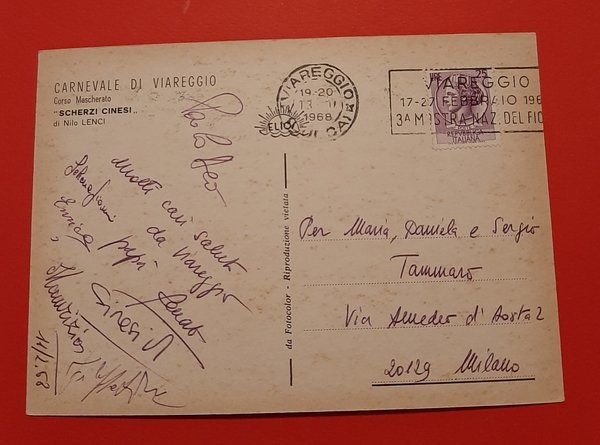 CARNEVALE DI VIAREGGIO
Corso Mascherato
"SCHERZI CINESI"
di Nilo LENCI
VIAREGGIO
19-20
1968
VIAREGGIO
17-27 FEBBRAIO 196
3A MOSTRA NAZ. DEL FIO
LIRE 25
REPUBBLICA
ITALIANA
Paolo
Molti cari saluti
da Viareggio
papi
Enrica
Maurizio
11/2/68
da Fotocolor - Riproduzione vietata
Per Maria, Daniela e Sergio
Tammaro
Via Amedeo d'Aosta 2
20129 Milano